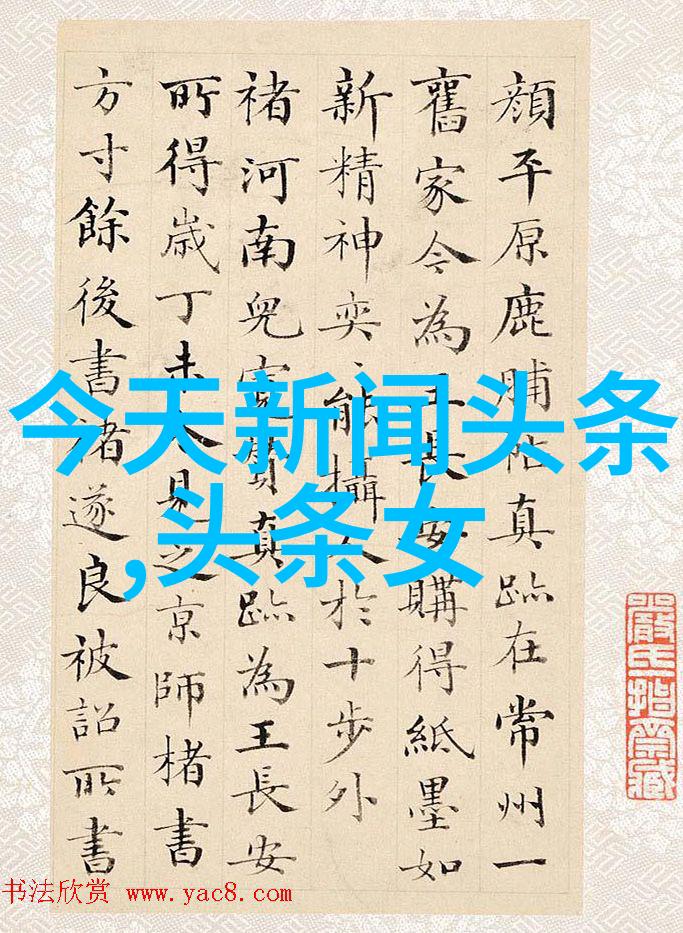 顔平原鹿脯帖真跡在常州一
舊家今為王長安購得紙墨如
新精神奕〻能攝人於十步外
褚河南兒寬賛真跡為王長安
所得歲丁未入見之京師楮書
方寸餘後書褚遂良被詔所書
今天新闻头条
,头条女
书法欣赏 www.yac8.com